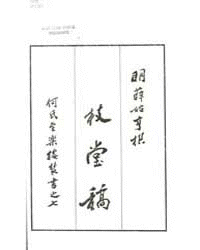 明薛始亨撰
枝堂稿
何氏至樂樓叢書之七